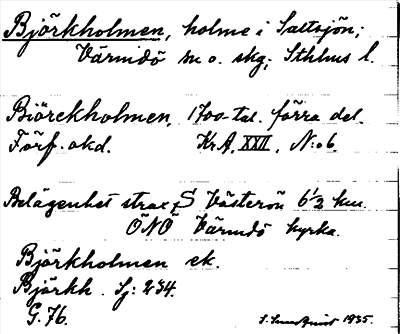 Björkholmen, holme i Saltsjön;
Värmdö sn o. skg; Sthlms l.
Biörckholmen, 1700-tal. förra del.
Förf. okd. KrA, XXII, N:o 6.
Belägenhet strax S Västerön 6½ km.
ÖNÖ Värmdö kyrka.
Björkholmen ek.
Björkh. Sj: 234.
G. 76.
S. Lundquist 1935.